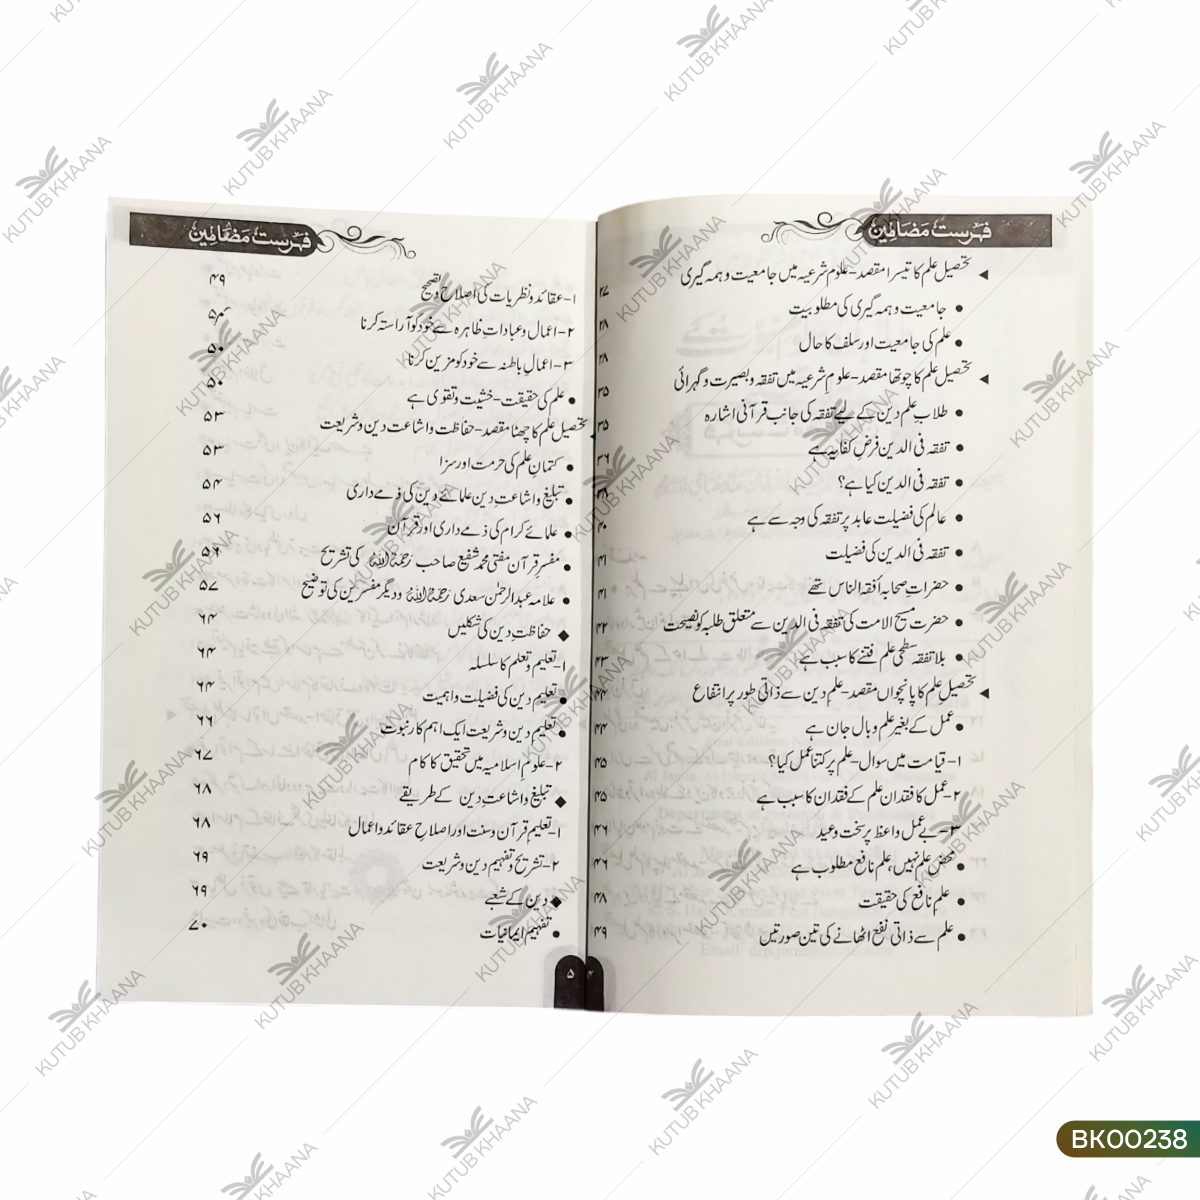 فہرست مضامین
تحصیل علم کا تیسرا مقصد - علوم شرعیہ میں جامعیت و ہمہ گیری ۲۷
جامعیت و ہمہ گیری کی مطلوبیت ۲۸
علم کی جامعیت اور سلف کا حال ۲۸
تحصیل علم کا چوتھا مقصد - علومِ شرعیہ میں تفقہ و بصیرت و گہرائی ۳۵
طلابِ علم دین کے لیے تفقہ کی جانب قرآنی اشارہ ۳۵
تفقہ فی الدین فرضِ کفایہ ہے ۳۶
تفقہ فی الدین کیا ہے؟ ۳۸
عالم کی فضیلت عابد پر تفقہ کی وجہ سے ہے ۴۰
تفقہ فی الدین کی فضیلت ۴۱
حضراتِ صحابہ أفقہ الناس تھے ۴۱
حضرت مسیح الامت کی تفقہ فی الدین سے متعلق طلبہ کو نصیحت ۴۲
بلا تفقہ سطحی علم فتنے کا سبب ہے ۴۳
تحصیلِ علم کا پانچواں مقصد - علمِ دین سے ذاتی طور پر انتفاع ۴۴
عمل کے بغیر علم وبالِ جان ہے ۴۴
۱- قیامت میں سوال - علم پر کتنا عمل کیا؟ ۴۵
۲- عمل کا فقدان علم کے فقدان کا سبب ہے ۴۵
۳- بے عمل واعظ پر سخت وعید ۴۶
محض علم نہیں، علم نافع مطلوب ہے ۴۶
علمِ نافع کی حقیقت ۴۸
علم سے ذاتی نفع اٹھانے کی تین صورتیں ۴۹
۴
فہرست مضامین
۱- عقائد و نظریات کی اصلاح و تصحیح ۴۹
۲- اعمال و عباداتِ ظاہرہ سے خود کو آراستہ کرنا
۳- اعمالِ باطنہ سے خود کو مزین کرنا ۵۰
علم کی حقیقت - خشیت و تقوی ہے ۵۰
تحصیلِ علم کا چھٹا مقصد - حفاظت و اشاعت دین و شریعت ۵۳
کتمانِ علم کی حرمت اور سزا ۵۳
تبلیغ و اشاعتِ دین علمائے دین کی ذمے داری ۵۴
علمائے کرام کی ذمے داری اور قرآن ۵۶
مفسرِ قرآن مفتی محمد شفیع صاحب رحمہ اللہ کی تشریح ۵۶
علامہ عبد الرحمٰن سعدی رحمہ اللہ و دیگر مفسرین کی توضیح ۵۷
حفاظتِ دین کی شکلیں ۶۴
۱- تعلیم و تعلم کا سلسلہ ۶۴
تعلیمِ دین کی فضیلت و اہمیت ۶۴
تعلیمِ دین و شریعت ایک اہم کارِ نبوت ۶۶
۲- علومِ اسلامیہ میں تحقیق کا کام ۶۷
تبلیغ و اشاعتِ دین کے طریقے ۶۸
۱- تعلیمِ قرآن و سنت اور اصلاحِ عقائد و اعمال ۶۸
۲- تشریح و تفہیم دین و شریعت ۶۹
دین کے شعبے ۶۹
تفہیمِ ایمانیات ۷۰
۵
KUTUB KHAANA
BK00238